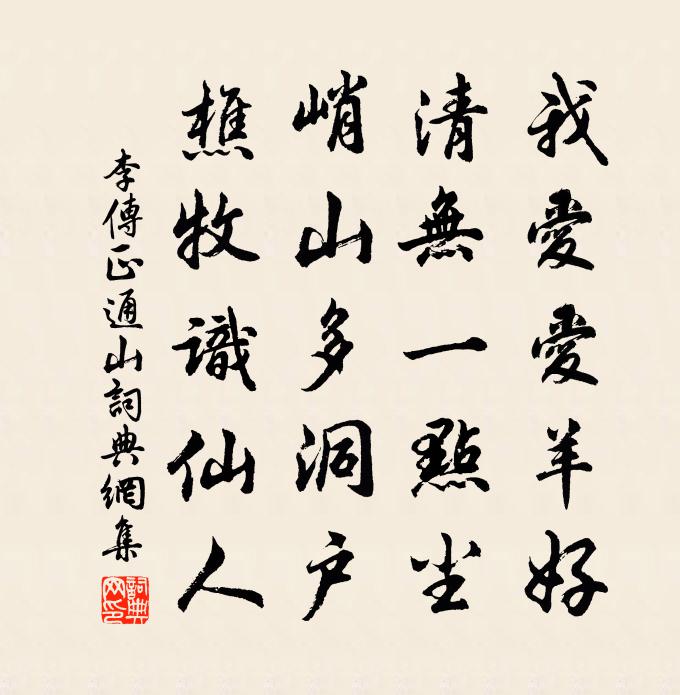 我愛愛羊好
清無一點尘
峭山多洞户
樵牧識仙人
李傳正通山詞典網集
詞典網印